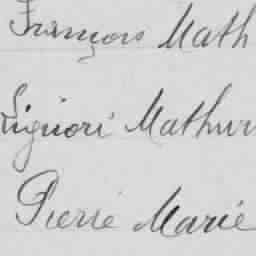 François Math
Liguori Mathur
Pierre Marie